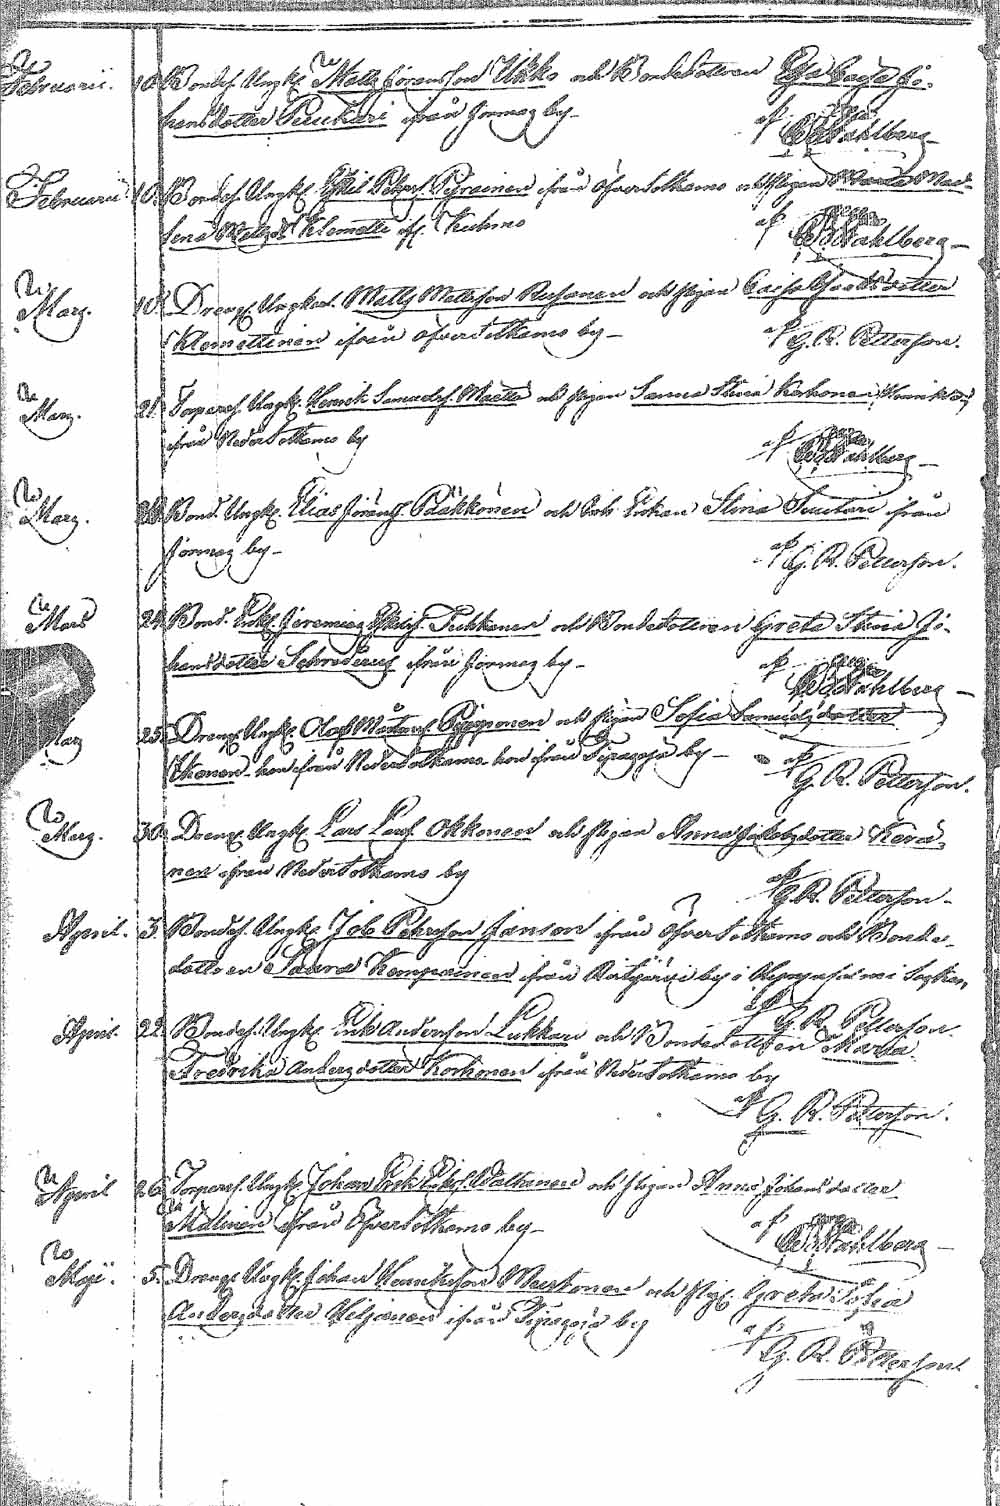 Februarii. 10. Bondes. Ungk. Matts Jöransson Ukko och Bondedotteren Jo-
hansdotter Pauckari ifrån Jormas by
af Wahlberg
Februarii 10. Bondes. Ungk. Eskil Petterss. Pyrainen ifrån Öfversotkamo och Pigan Mag-
lena Mattsdr Klemetti if. Kuhmo
af Wahlberg
Mars. 10. Dreng. Ungkar. Matts Mattsson Rusanen och Pigan Caisa dotter
Klemettinen ifrån Öfversotkamo by
af G. R. Petterson.
Mars. 21. Torpares. Ungk. Henrik Samuels. Määttä och Pigan Sanna Stina Korhonen
ifrån Nedersotkamo by
af Wahlberg
Mars. Bond. Ungk. Elias Jöranss. Pääkkönen och Enkan Stina Suutari ifrån
Jormas by
af G. R. Petterson.
Mars 24. Bond. Enkl. Jeremias Eskils. Pukkonen och Bondedotteren Greta Stina Jo-
hansdotter Schroderus ifrån Jormas by
af Wahlberg
Mars 25. Dreng. Ungk. Olof Piipponen och Pigan Sofia Samuelsdotter
han ifrån Nedersotkamo hon ifrån Tipasoja by
af G. R. Petterson.
Mars. 30. Dreng. Ungk. Lars Larss. Okkonen och Pigan Anna Jakobsdotter Kerä-
nen ifrån Nedersotkamo by
af G. R. Petterson.
April. 3. Bondes. Ungk. Job Pehrsson Janson ifrån Öfversotkamo och Bonde-
dotteren Saara Komppainen ifrån by i Socken
af G. R. Petterson.
April. 22. Bondes. Ungk. Erik Andersson Lukkari och Bondedotteren Maria
Fredrika Andersdotter Korhonen ifrån Nedersotkamo by
af G. R. Petterson.
April 26. Torpares. Ungk. Johan Erik Eriks. Walkonen och Pigan Anna Johansdotter
Malinen ifrån Öfversotkamo by
af Wahlberg
Maji. 5. Dreng. Ungk. Johan Henriksson Mustonen och Pig. Greta Sofia
Andersdotter Kiljanen ifrån Tipasoja by
af G. R. Petterson.